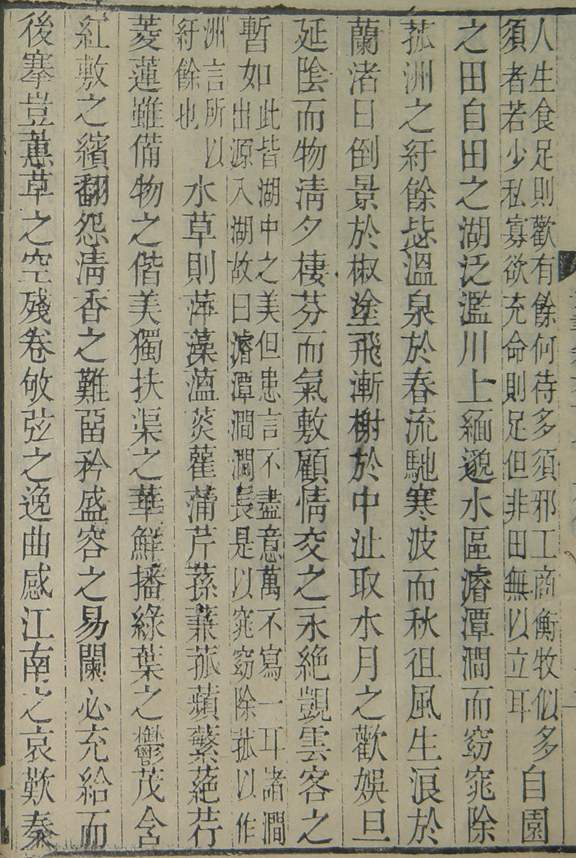 人生食足則歡有餘何待多須邪工商衡牧似多
須者若少私寡欲充命則足但非田無以立耳
自園
之田自田之湖泛濫川上緬邈水區濬潭澗而窈窕除
菰洲之紆餘毖溫泉於春流馳寒波而秋徂風生浪於
蘭渚日倒景於椒塗飛漸榭於中沚取水月之歡娛旦
延陰而物清夕棲芬而氣敷顧情交之永絕覬雲客之
暫如
此皆湖中之美但患言不盡意萬不寫一耳諸澗
出源入湖故曰濬潭澗澗長是以窕窈除菰以作
洲言所以
紆餘也
水草則萍藻薀菼雚蒲芹蓀蒹菰蘋蘩蕝荇
菱蓮雖備物之偕美獨扶渠之華鮮播綠葉之鬱茂含
紅敷之繽翻怨清香之難畱矜盛容之易闌必充給而
後搴豈蕙草之空殘卷敂弦之逸曲感江南之哀歎秦